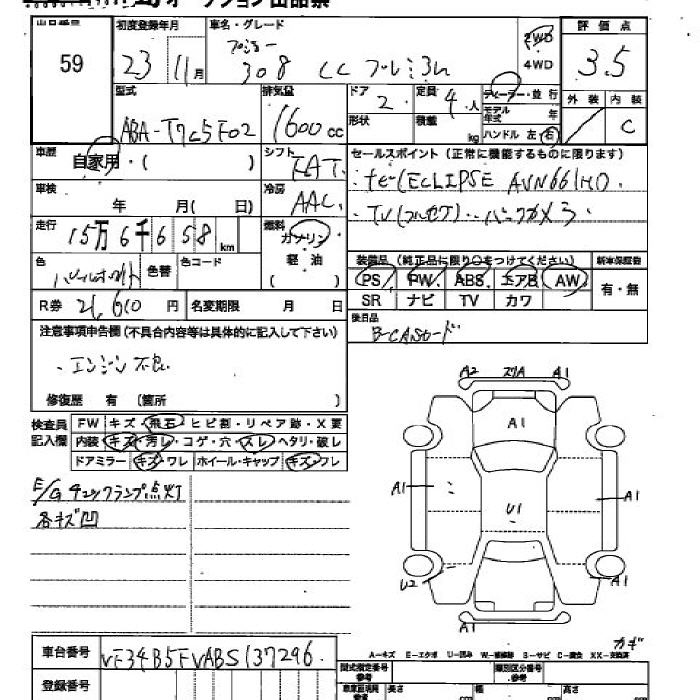 オークション出品票
出品番号 初度登録年月 車名・グレード 評価点
59 23 11月 プジョー 308 CC プレミアム 2WD 4WD 3.5
型式 排気量 ドア 2 定員 4人 ディーラー・並行 外装 内装
ABA-T7C5F02 1600cc 形状 積載 kg モデル年式 年 ハンドル 左・右 C
車歴 自家用・( ) シフト FAT セールスポイント(正常に機能するものに限ります)
車検 年 月( 日) 冷房 AAC ECLIPSE AVN661HD
TV(フルセグ) バックカメラ
走行 15万6千658km 燃料 ガソリン 軽油 ( )
装備品(純正品に限り○をつけてください) 新車保証書
色 パールホワイト 色替 色コード PS PW ABS エアB AW 有・無
R券 21,610円 名変期限 月 日 SR ナビ TV カワ
注意事項申告欄(不具合内容等は具体的に記入して下さい) 後日品
B-CASカード
・エンジン不良
修復歴 有 (箇所 )
検査員記入欄 FW キズ・飛石・ヒビ割・リペア跡・X要
内装 キズ・汚レ・コゲ・穴・スレ・ヘタリ・破レ
ドアミラー キズ・ワレ ホイール・キャップ キズ・フレ
A2 スリA A1
A1
E/Gチェックランプ点灯
A1 A1
各キズ凹
U1
U2 A1
A1
カギ
A-キズ E-エクボ U-凹み W-補修跡 S-サビ C-腐食 XX-交換済
車台番号 VF34B5FVABS137296
型式指定番号 類別区分番号
登録番号 長さ cm 幅 cm 高さ cm